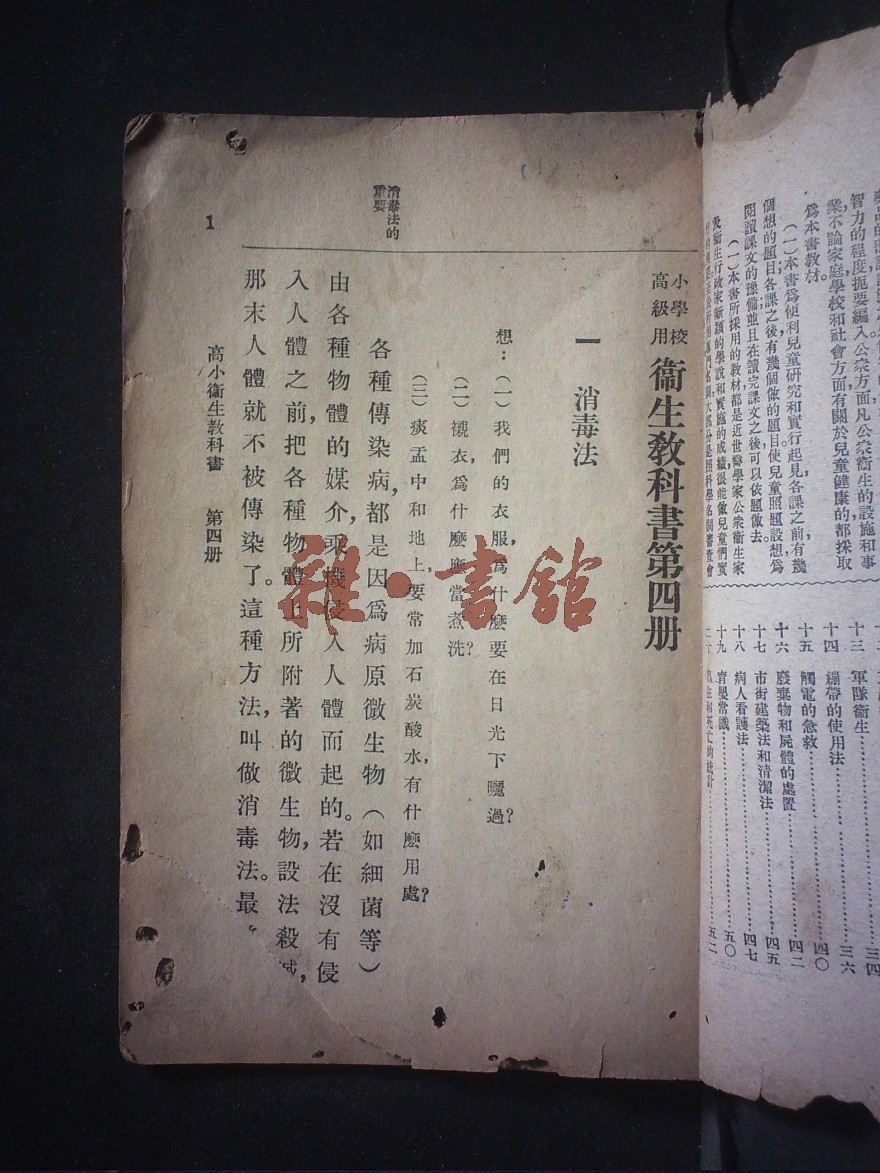 業不論家庭學校和社會方面,有關於兒童健康的都採取
爲本書教材.
(一)本書爲便利兒童研究和實行起見,各課之前有幾
個想的題目;各課之後有幾個做的題目,使兒童照題設想,爲
閱讀課文的豫備,並且在讀完課文之後,可以依題做去。
(一)本書所採用的教材,都是近世醫學家公衆衞生家
十三 軍隊衞生 三六
十四 繃帶的使用法 四〇
十五 觸電的急救 四二
十六 廢棄物和屍體的處置 四五
十七 市街建築法和清潔法 四七
十八 病人看護法 五〇
十九 育嬰常識 五二
小學校
高級用
衞生教科書第四册
一 消毒法
想:(一)我們的衣服,爲什麼要在日光下曬過?
(二)襯衣,爲什麼應當煮洗?
(三)痰盂中和地上,要常加石炭酸水,有什麼用處?
各種傳染病,都是因爲病原微生物(如細菌等)
由各種物體的媒介,乘機侵入人體而起的。若在沒有侵
入人體之前,把各種物體上所附著的微生物,設法殺滅,
那末人體就不被傳染了。這種方法,叫做消毒法。最
消毒法的
重要
1
高小衞生教科書 第四册
雜·書館